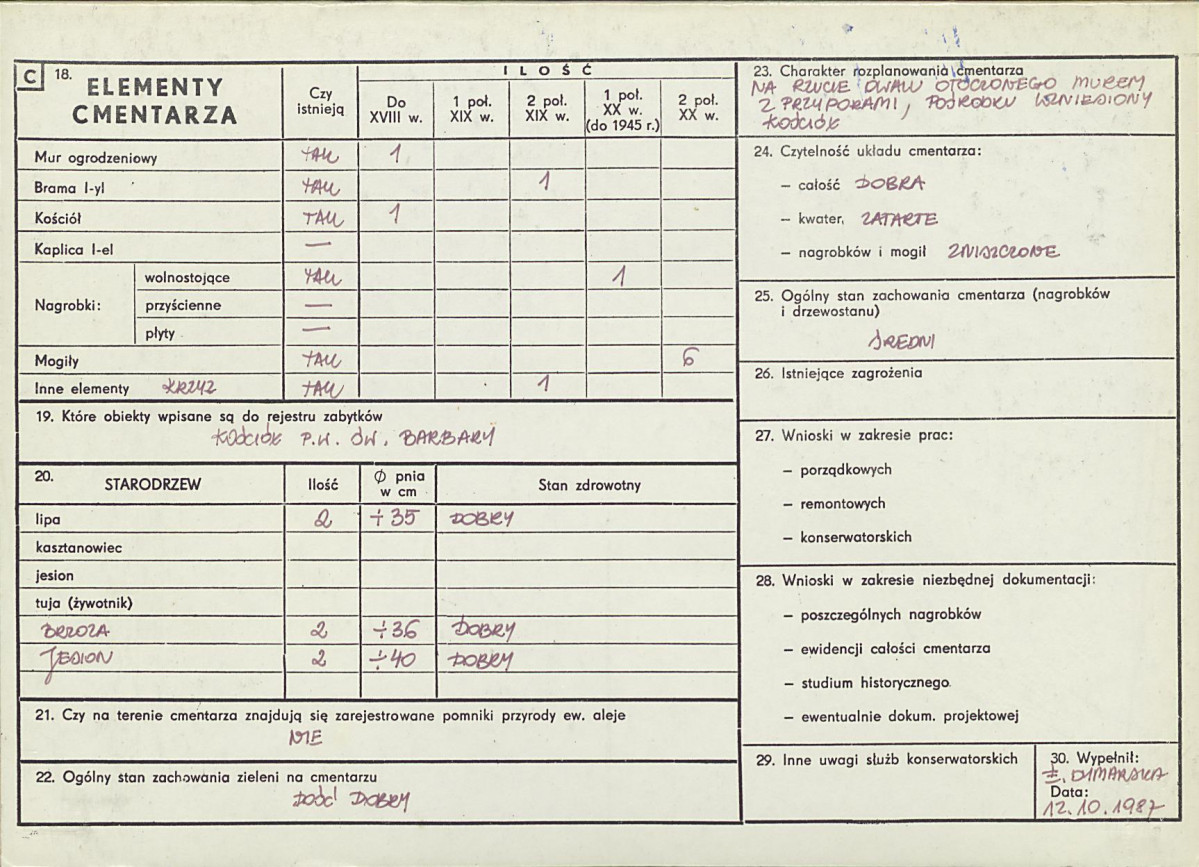 C 18. ELEMENTY CMENTARZA
Czy istnieją
ILOŚĆ
Do XVIII w.
1 poł. XIX w.
2 poł. XIX w.
1 poł. XX w. (do 1945 r.)
2 poł. XX w.
Mur ogrodzeniowy TAK 1
Brama I-yl TAK 1
Kościół TAK 1
Kaplica I-el —
Nagrobki:
wolnostojące TAK 1
przyścienne —
płyty —
Mogiły TAK 6
Inne elementy KRZYŻ TAK 1
19. Które obiekty wpisane są do rejestru zabytków
KOŚCIÓŁ P.W. ŚW. BARBARY
20. STARODRZEW
Ilość
Ø pnia w cm
Stan zdrowotny
lipa 2 ÷ 35 DOBRY
kasztanowiec
jesion
tuja (żywotnik)
BRZOZA 2 ÷ 36 DOBRY
JESION 2 ÷ 40 DOBRY
21. Czy na terenie cmentarza znajdują się zarejestrowane pomniki przyrody ew. aleje
NIE
22. Ogólny stan zachowania zieleni na cmentarzu
DOŚĆ DOBRY
23. Charakter rozplanowania cmentarza
NA RZUCIE OWALU OTOCZONEGO MUREM
Z PRZYPORAMI, POŚRODKU WZNIESIONY
KOŚCIÓŁ
24. Czytelność układu cmentarza:
– całość DOBRA
– kwater, ZATARTE
– nagrobków i mogił ZNISZCZONE
25. Ogólny stan zachowania cmentarza (nagrobków
i drzewostanu)
ŚREDNI
26. Istniejące zagrożenia
27. Wnioski w zakresie prac:
– porządkowych
– remontowych
– konserwatorskich
28. Wnioski w zakresie niezbędnej dokumentacji:
– poszczególnych nagrobków
– ewidencji całości cmentarza
– studium historycznego
– ewentualnie dokum. projektowej
29. Inne uwagi służb konserwatorskich
30. Wypełnił:
Data:
12.10.1987